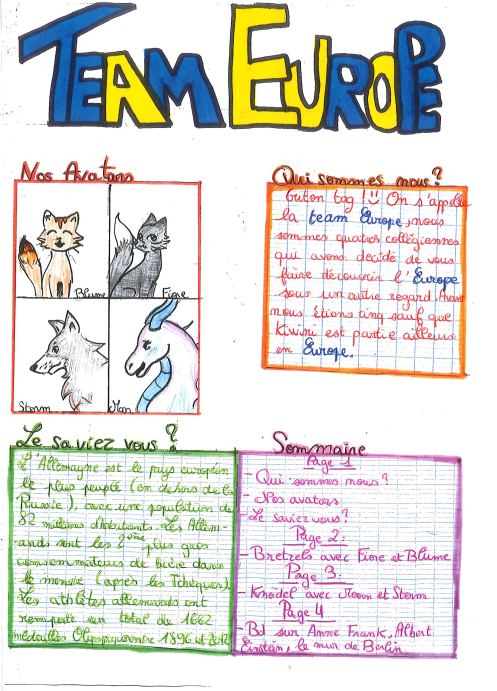 TEAM EUROPE
Nos Avatars
Blume
Fione
Storm
Qui sommes nous?
Guten tag! On s'appelle
la team Europe, nous
sommes quatres collégiennes
qui avons décidé de vous
faire découvrir l'Europe
sous un autre regard. Avant
nous étions cinq sauf que
Kiwini est partie ailleurs
en Europe.
Le saviez vous?
L'Allemagne est le pays européen
le plus peuplé (en dehors de la
Russie), avec une population de
82 millions d'habitants. Les Allem-
ands sont les 2ème plus gros
consommateurs de bière dans
le monde (après les Tchèques).
Les athlètes allemands ont
remporté un total de 1662
médailles Olympiques entre 1896 et 2012
Sommaire
Page 1
- Qui sommes nous?
- Nos avatars
- Le saviez vous?
Page 2
- Bretzels avec Fione et Blume
Page 3
- Knödel avec Moon et Storm
Page 4
- Bd sur Anne Frank, Albert
Einstein, le mur de Berlin